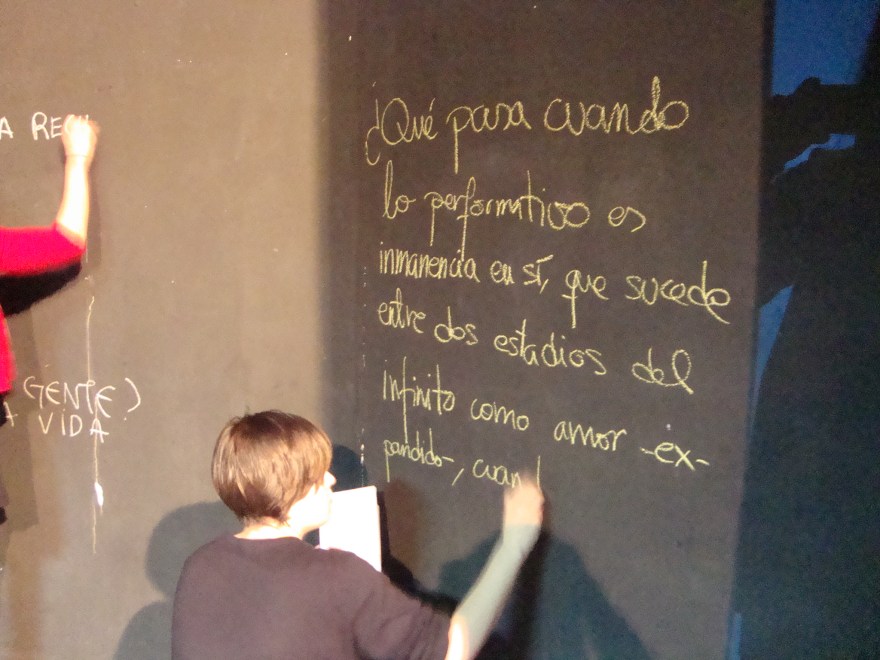 A REC
GENTE)
VIDA
¿Qué pasa cuando
lo performativo es
inmanencia en sí, que sucede
entre dos estadios del
infinito como amor -ex-
pandido-, cuan